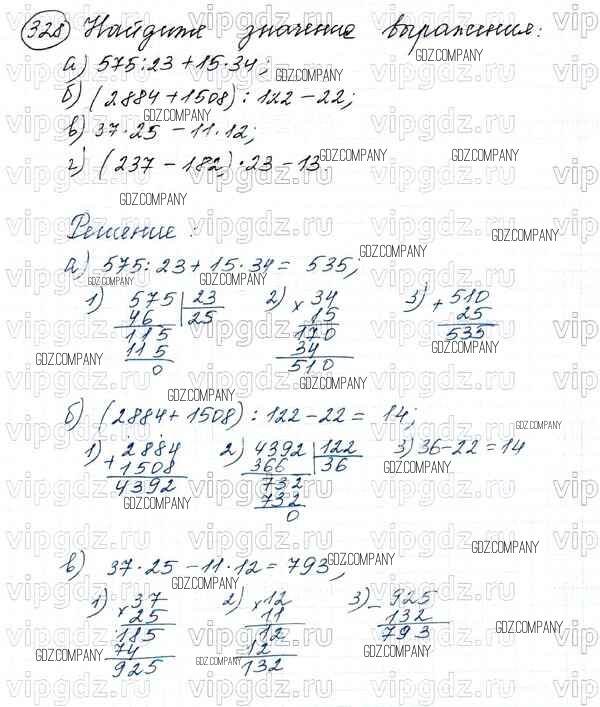 328 Найдите значение выражения:
а) 575:23+15·34;
б) (2884+1508):122-22;
в) 37·25-11·12;
г) (237-182)·23-13.
Решение:
а) 575:23+15·34=535;
1) 575 23 2) × 34 3) + 510
46 25 15 25
115 170 535
115 34
0 510
б) (2884+1508):122-22=14;
1) + 2884 2) 4392 122 3) 36-22=14
1508 366 36
4392 732
732
0
в) 37·25-11·12=793;
1) × 37 2) × 12 3) - 925
25 11 132
185 12 793
74 12
925 132
vipgdz.ru
GDZ.COMPANY